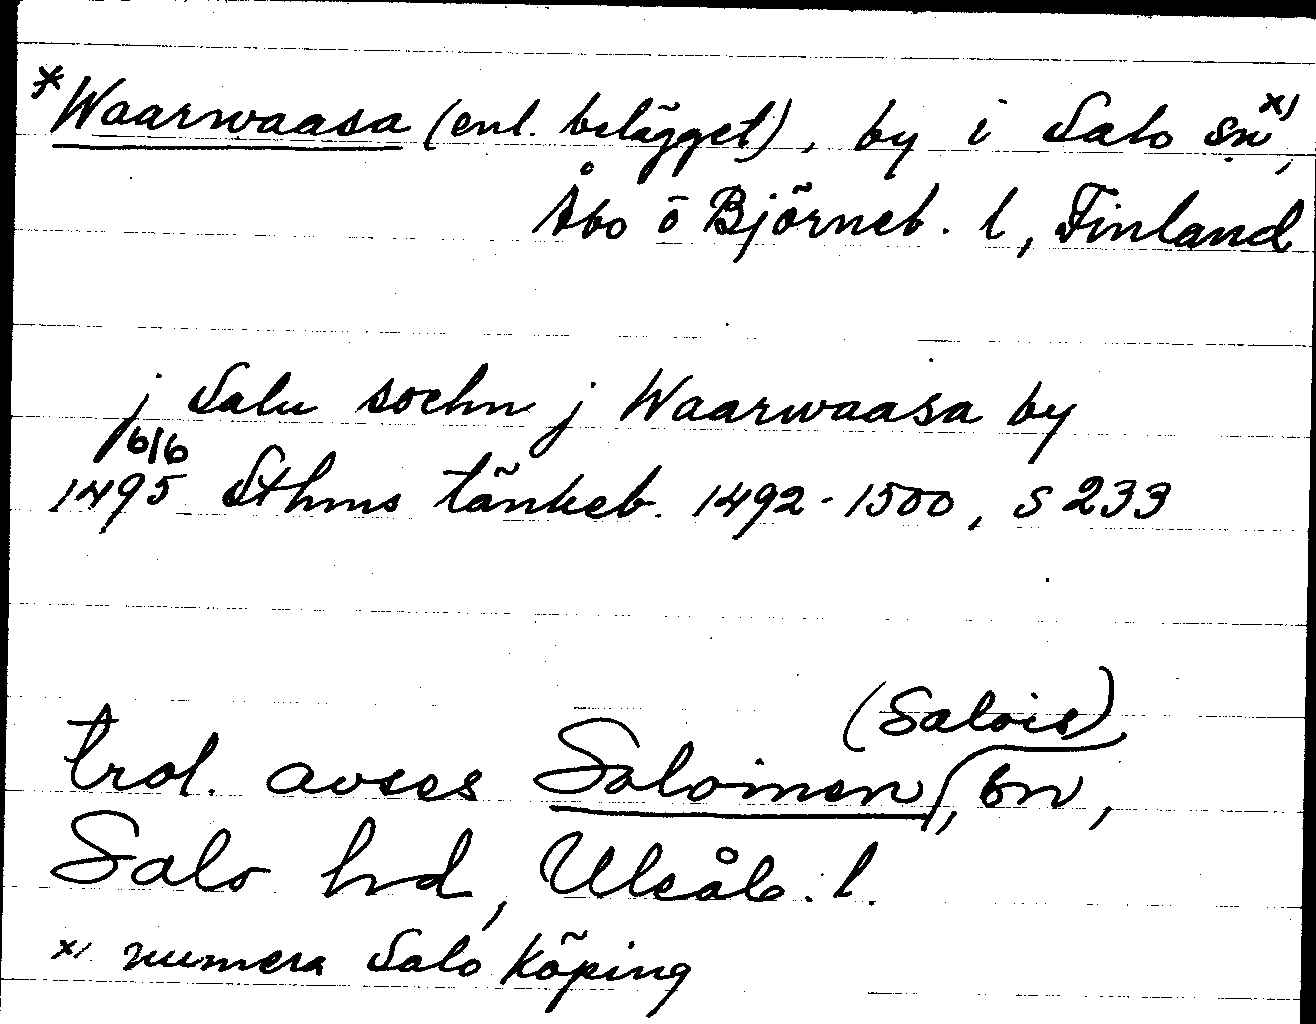 *Waarwaasa (enl. belägget), by i Salo sn x),
Åbo o Björneb. l, Finland
j Salu sochn j Waarwaasa by
6/6
1495 Sthms tänkeb. 1492-1500, s 233
(Salois)
trol. avses Saloinen, sn,
Salo hd, Uleåb. l.
x) numera Salo köping